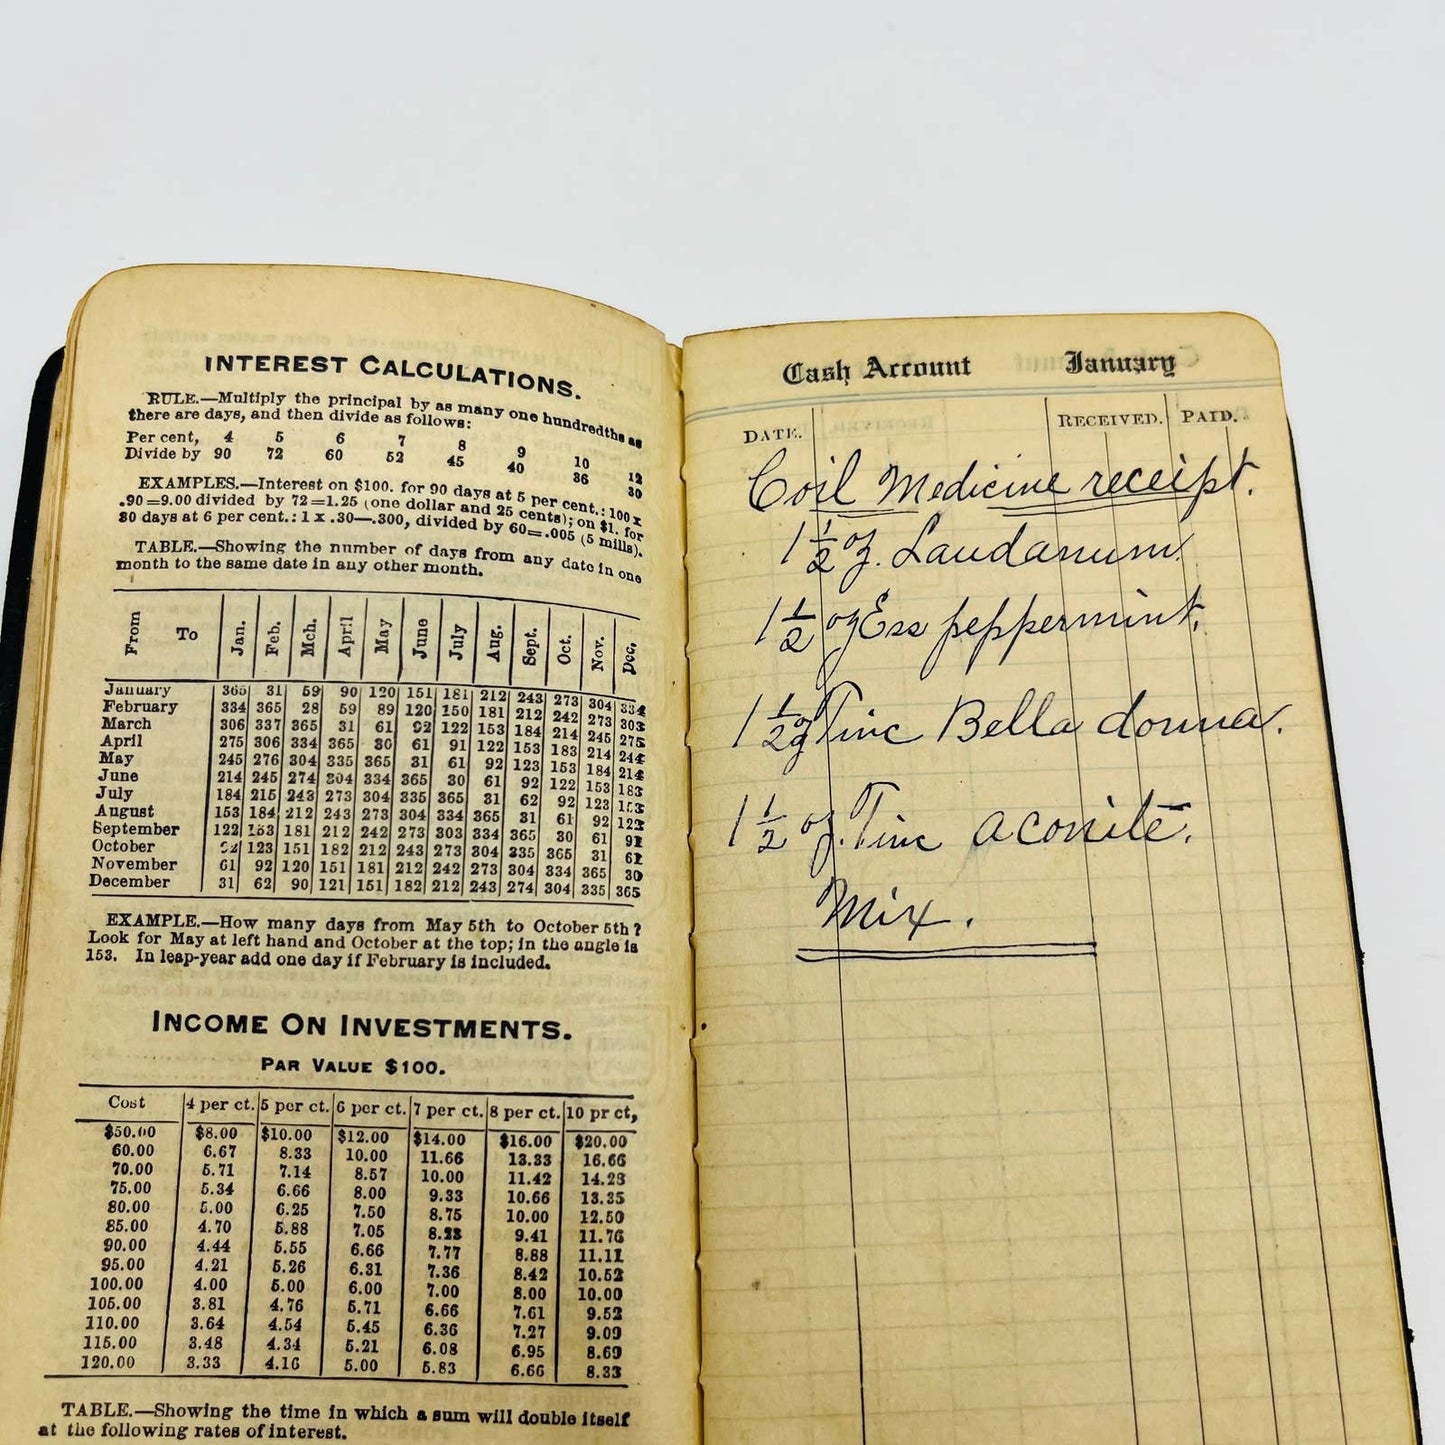 INTEREST CALCULATIONS.
RULE.—Multiply the principal by as many one hundredths as
there are days, and then divide as follows:
Per cent, 4 5 6 7 8 9 10 12
Divide by 90 72 60 52 45 40 36 30
EXAMPLES.—Interest on $100. for 90 days at 5 per cent.: 100 x
.90=9.00 divided by 72=1.25 (one dollar and 25 cents); on $1. for
30 days at 6 per cent.: 1 x .30—.300, divided by 60=.005 (5 mills).
TABLE.—Showing the number of days from any date in one
month to the same date in any other month.
From To Jan. Feb. Mch. April May June July Aug. Sept. Oct. Nov. Dec.
January 365 31 59 90 120 151 181 212 243 273 304 334
February 334 365 28 59 89 120 150 181 212 242 273 303
March 306 337 365 31 61 92 122 153 184 214 245 275
April 275 306 334 365 30 61 91 122 153 183 214 244
May 245 276 304 335 365 31 61 92 123 153 184 214
June 214 245 274 304 334 365 30 61 92 122 153 183
July 184 215 243 273 304 335 365 31 62 92 123 153
August 153 184 212 243 273 304 334 365 31 61 92 122
September 122 153 181 212 242 273 303 334 365 30 61 91
October 92 123 151 182 212 243 273 304 335 365 31 61
November 61 92 120 151 181 212 242 273 304 334 365 30
December 31 62 90 121 151 182 212 243 274 304 335 365
EXAMPLE.—How many days from May 5th to October 5th?
Look for May at left hand and October at the top; in the angle is
153. In leap-year add one day if February is included.
INCOME ON INVESTMENTS.
PAR VALUE $100.
Cost 4 per ct. 5 per ct. 6 per ct. 7 per ct. 8 per ct. 10 pr ct,
$50.00 $8.00 $10.00 $12.00 $14.00 $16.00 $20.00
60.00 6.67 8.33 10.00 11.66 13.33 16.66
70.00 5.71 7.14 8.57 10.00 11.42 14.28
75.00 5.34 6.66 8.00 9.33 10.66 13.35
80.00 5.00 6.25 7.50 8.75 10.00 12.50
85.00 4.70 5.88 7.05 8.23 9.41 11.76
90.00 4.44 5.55 6.66 7.77 8.88 11.11
95.00 4.21 5.26 6.31 7.36 8.42 10.52
100.00 4.00 5.00 6.00 7.00 8.00 10.00
105.00 3.81 4.76 5.71 6.66 7.61 9.52
110.00 3.64 4.54 5.45 6.36 7.27 9.09
115.00 3.48 4.34 5.21 6.08 6.95 8.69
120.00 3.33 4.16 5.00 5.83 6.66 8.33
TABLE.—Showing the time in which a sum will double itself
at the following rates of interest.
Cash Account January
DATE. RECEIVED. PAID.
Coil Medicine receipt.
1 1/2 oz. Laudanum.
1 1/2 oz Ess peppermint.
1 1/2 oz Tinc Bella donna.
1 1/2 oz. Tinc aconite.
Mix.